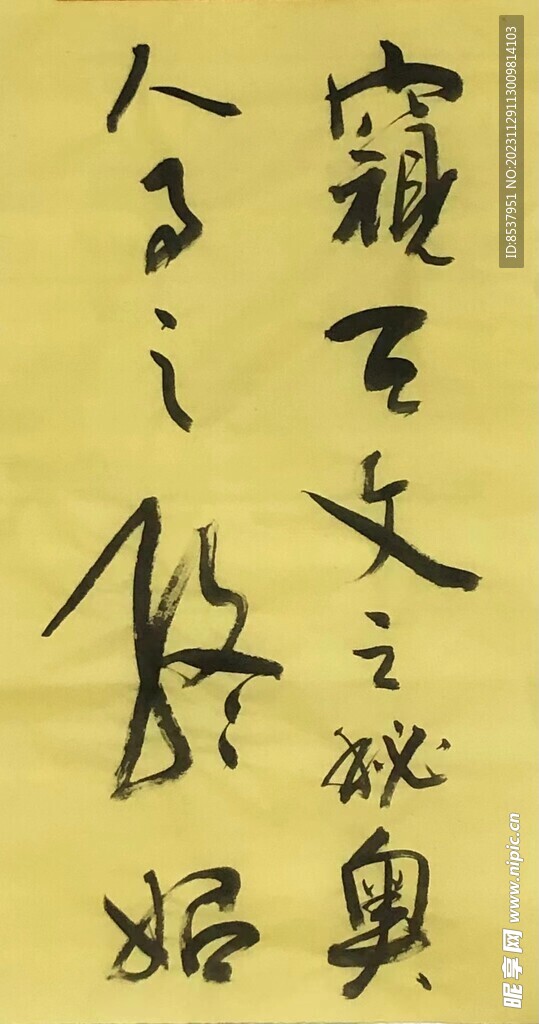 窺天文之秘奥
人事之終始
ID:8537951 NO:20231129113009814103
昵享网 www.nipic.cn